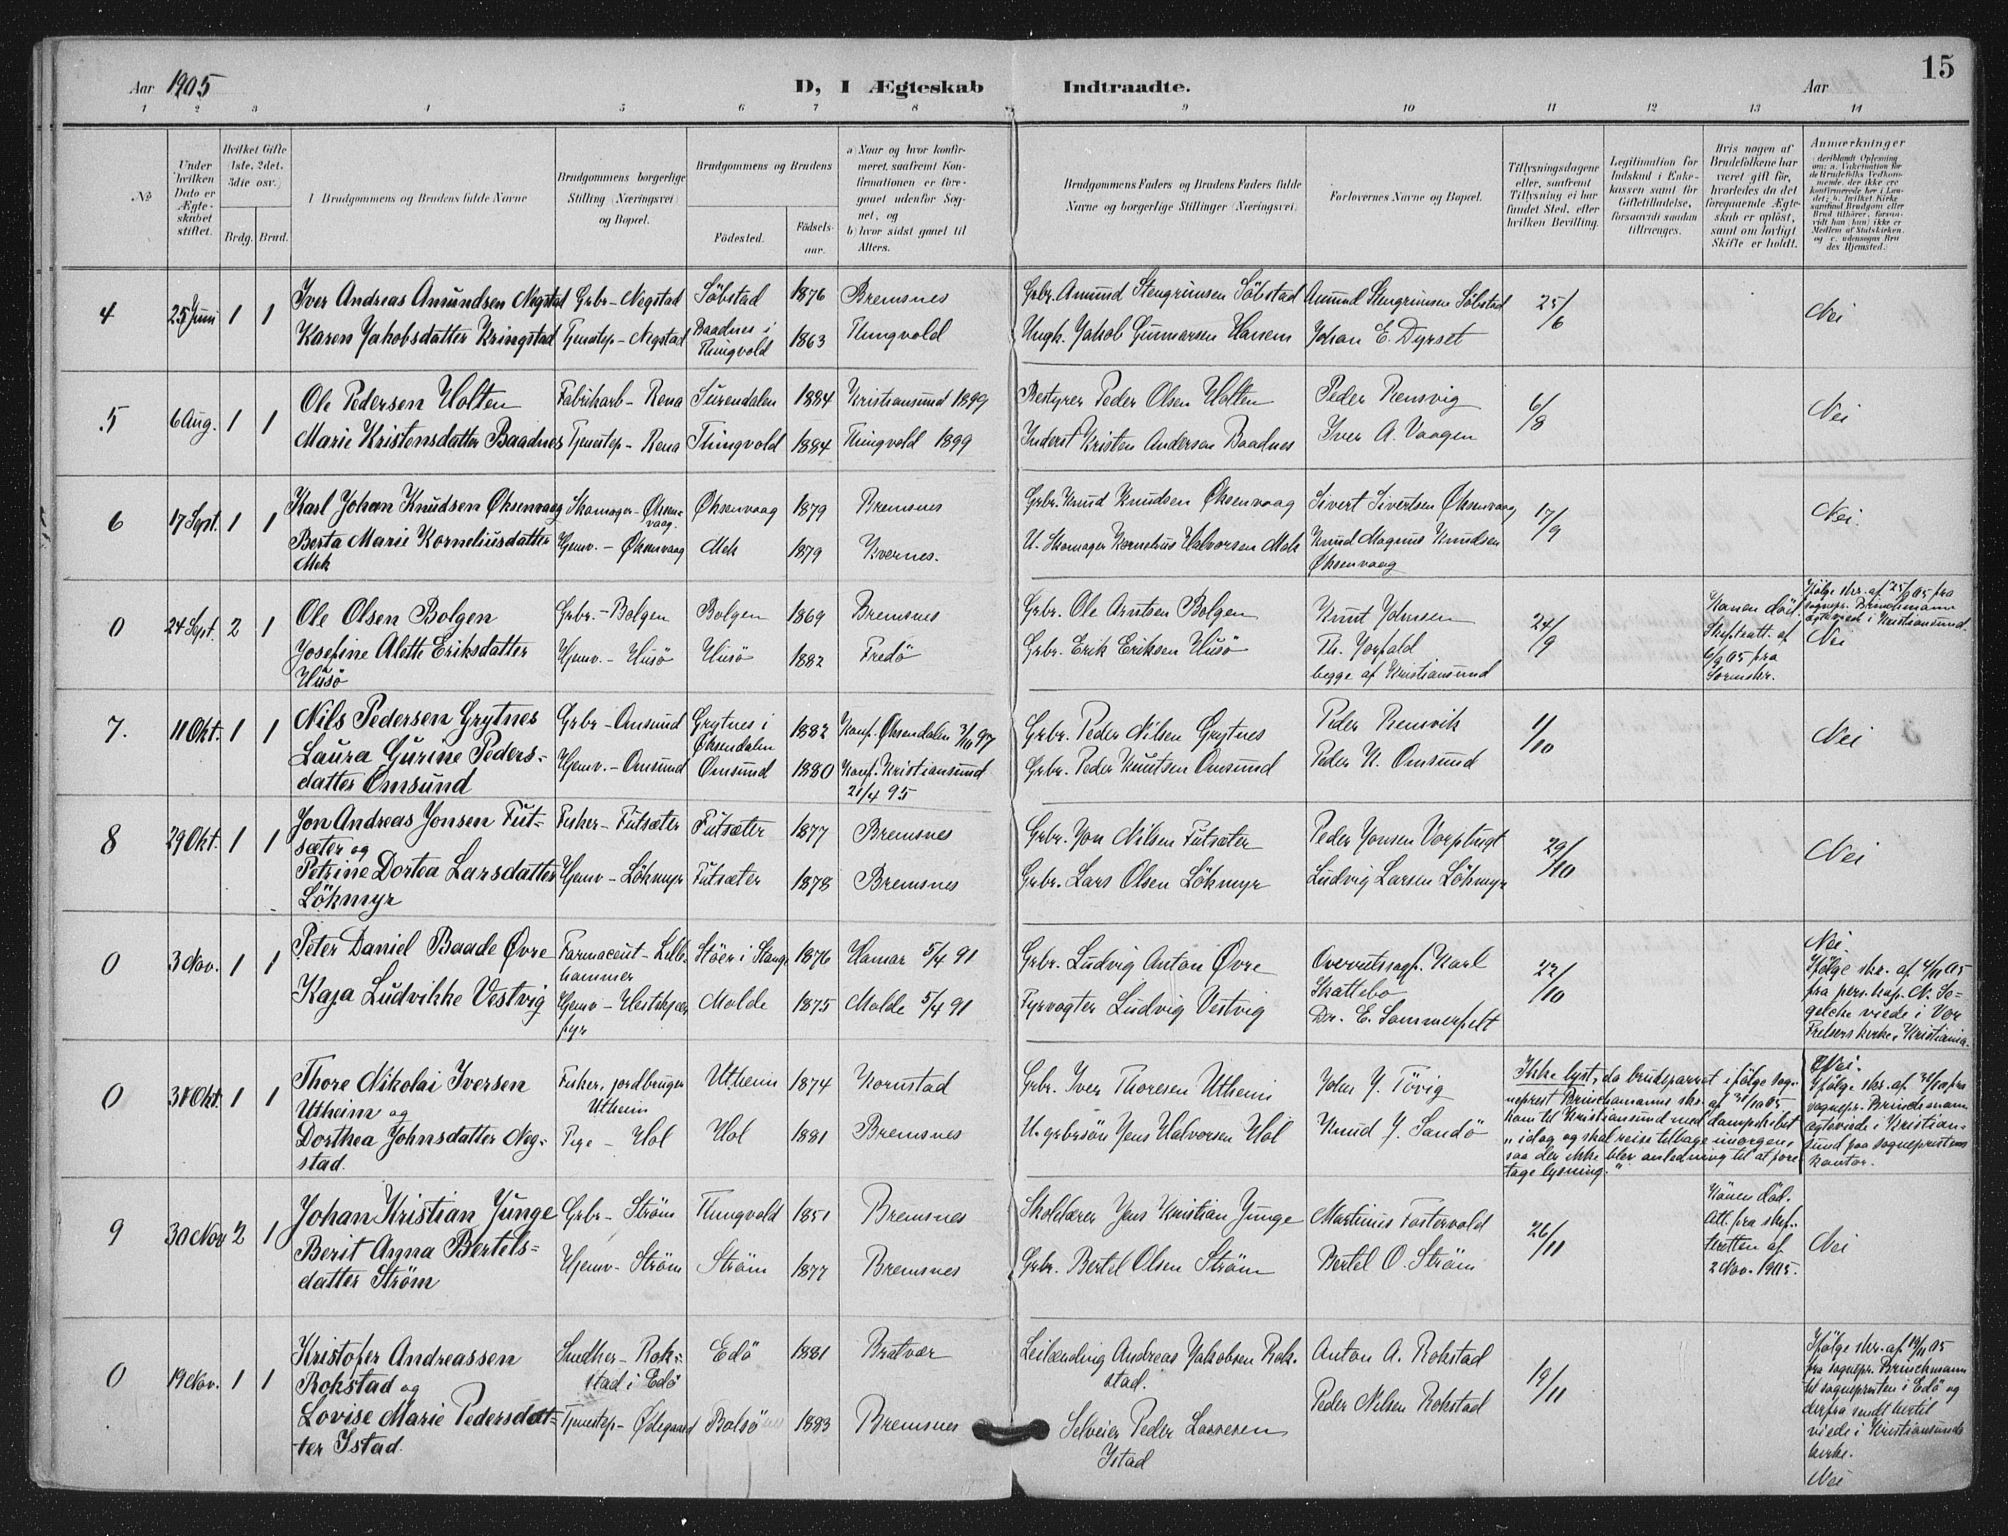 15
Aar 1905
D, I Ægteskab Indtraadte.
Aar
1 2 3 4 5 6 7 8 9 10 11 12 13 14
No
Under hvilken Dato er Ægteskabet stiftet.
Hvilket Gifte (1ste, 2det, 3die osv.)
Brdg. Brud.
I Brudgommens og Brudens fulde Navne
Brudgommens borgerlige Stilling (Næringsvei) og Bopæl.
Brudgommens og Brudens
Fødested.
Fødselsaar.
a) Naar og hvor konfirmeret, saafremt Konfirmationen er foregaaet udenfor Sognet, og
b) hvor sidst gaaet til Alters.
Brudgommens Faders og Brudens Faders fulde Navne og borgerlige Stillinger (Næringsvei)
Forlovernes Navne og Bopæl.
Tillysningsdagene eller, saafremt Tillysning ei har fundet Sted, efter hvilken Bevilling.
Legitimation for Indskud i Enkekassen samt for Giftetilladelse, forsaavidt saadan tiltrænges.
Hvis nogen af Brudefolkene har været gift før, hvorledes da det foregaaende Ægteskab er opløst, samt om lovligt Skifte er holdt.
Anmærkninger
4 25 Juni 1 1
Iver Andreas Amundsen Negstad Grbr – Negstad Söbstad 1876 Bremsnes Grbr. Amund Stengrimsen Söbstad Amund Stengrimsen Söbstad 25/6 Nei
Karen Jakobsdatter Kringstad Tjenstep – Negstad Baadnes i Thingvold 1863 Thingvold Ungk. Jakob Gunnarsen Hansem Johan E. Dyrset
5 6 Aug. 1 1
Ole Pedersen Holten Fabrikarb – Rena Surendalen 1884 Kristiansund 1899 Bestyrer Peder Olsen Holten Peder Rensvig 6/8 Nei
Marie Kristensdatter Baadnes Tjenestep – Rena Thingvold 1884 Thingvold 1899 Inderst Kristen Andersen Baadnes Iver A. Vaagen
6 17 Sept. 1 1
Karl Johan Knudsen Øksenvaag Skomager – Øksenvaag Øksenvaag 1879 Bremsnes Grbr. Knud Knudsen Øksenvaag Sivert Sivertsen Øksenvaag 17/9 Nei.
Berta Marie Korneliusdatter Mek Hjemv. – Øksenvaag Mek 1879 Kvernes. U. Skomager Kornelius Halvorsen Mek Knud Magnus Knudsen Øksenvaag
0 24 Sept. 2 1
Ole Olsen Bolgen Grbr. – Bolgen Bolgen 1869 Bremsnes Grbr. Ole Arntsen Bolgen Knut Johnsen 24/9
Josefine Alette Eriksdatter Husö Hjemv. – Husö Husö 1882 Fredö Grbr. Erik Eriksen Husö Th. Jorfald
begge af Kristiansund
Konen död. Skifteatt. af 6/9 05 fra Sorenskr.
Ifölge skr. af 25/9 05 fra sognepr. Brinchmann ægteviede i Kristiansund. Nei
7. 11 Okt. 1 1
Nils Pedersen Grytnes Grbr – Omsund Grytnes i Øksendalen 1882 Konf. Øksendalen 3/10 97 Grbr. Peder Nilsen Grytnes Peder Rensvik 1/10 Nei
Laura Gurine Pedersdatter Omsund Hjemv. – Omsund Omsund 1880 Konf. Kristiansund 21/4 95 Grbr. Peder Knutsen Omsund Peder K. Omsund
8 29 Okt. 1 1
Jon Andreas Jonsen Futsæter og Fisker – Futsæter Futsæter 1877 Bremsnes Grbr. Jon Nilsen Futsæter Peder Jonsen Vorpbugt 29/10 Nei
Petrine Dortea Larsdatter Lökmyr Hjemv – Lökmyr Futsæter 1878 Bremsnes Grbr. Lars Olsen Lökmyr Ludvig Larsen Lökmyr
0 3 Nov. 1 1
Peter Daniel Baade Øvre Farmaceut – Lillehammer Stöer i Stange 1876 Hamar 5/4 91 Grbr. Ludvig Anton Øvre Overretssagf. Karl Skattebo 22/10
Kaja Ludvikke Vestvig Hjemv – Hestskjær fyr Molde 1875 Molde 5/4 91 Fyrvogter Ludvig Vestvig Dr. E. Sommerfelt
Nei. Ifölge skr. af 4/11 05 fra pers. kap. N. Sogelcke viede i Vor Frelsers kirke, Kristiania.
0 31 Okt. 1 1
Thore Nikolai Iversen Utheim og Fisker, jordbruger Utheim Utheim 1874 Kornstad Grbr. Iver Thoresen Utheim Johs J. Tövig
Dorthea Johnsdatter Negstad. Pige – Hol Hol 1881 Bremsnes U. grbrsön Jens Halvorsen Hol Knud J. Sandö
Ikke lyst, da brudeparret ifölge sogneprest Brinchmanns skr. af 31/10 05 kom til Kristiansund med dampskibet
„idag og skal reise tilbage imorgen,
saa der ikke blev anledning til at foretage lysning."
Nei. Ifölge skr. af 31/10 fra sognepr. Brinchmann ægteviede i Kristiansund paa sogneprestens kontor.
9 30 Nov 2 1
Johan Kristian Junge Grbr – Ström Thingvold 1851 Bremsnes Skolelærer Jens Kristian Junge Martinus Fostervold 26/11 Nei
Berit Anna Bertelsdatter Ström Hjemv – Ström Ström 1877 Bremsnes Grbr. Bertel Olsen Ström Bertel O. Ström
Konen död. Att. fra skifteretten af 2 Nov. 1905.
0 19 Nov. 1 1
Kristofer Andreassen Rokstad og Snedker – Rokstad i Edö Edö 1881 Bratvær Leilænding Andreas Jakobsen Rokstad. Anton A. Rokstad 19/11
Lovise Marie Pedersdatter Istad. Tjenestep – Ødegaard Bolsö 1883 Bremsnes Selveier Peder Lassesen Istad Peder Nilsen Rokstad
Ifölge skr. af 19/11 05 fra sognepr. Brinchmann til sognepresten i Edö og derfra sendt hertil viede i Kristiansunds kirke.
Nei